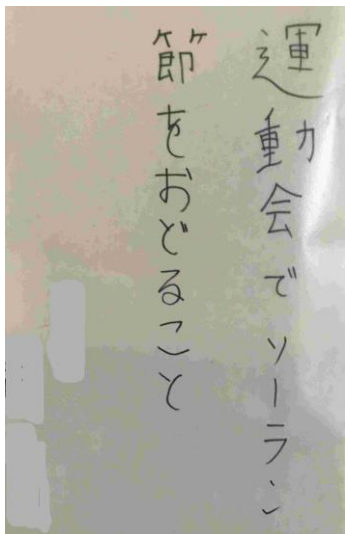 運動会でソーラン
節をおどること